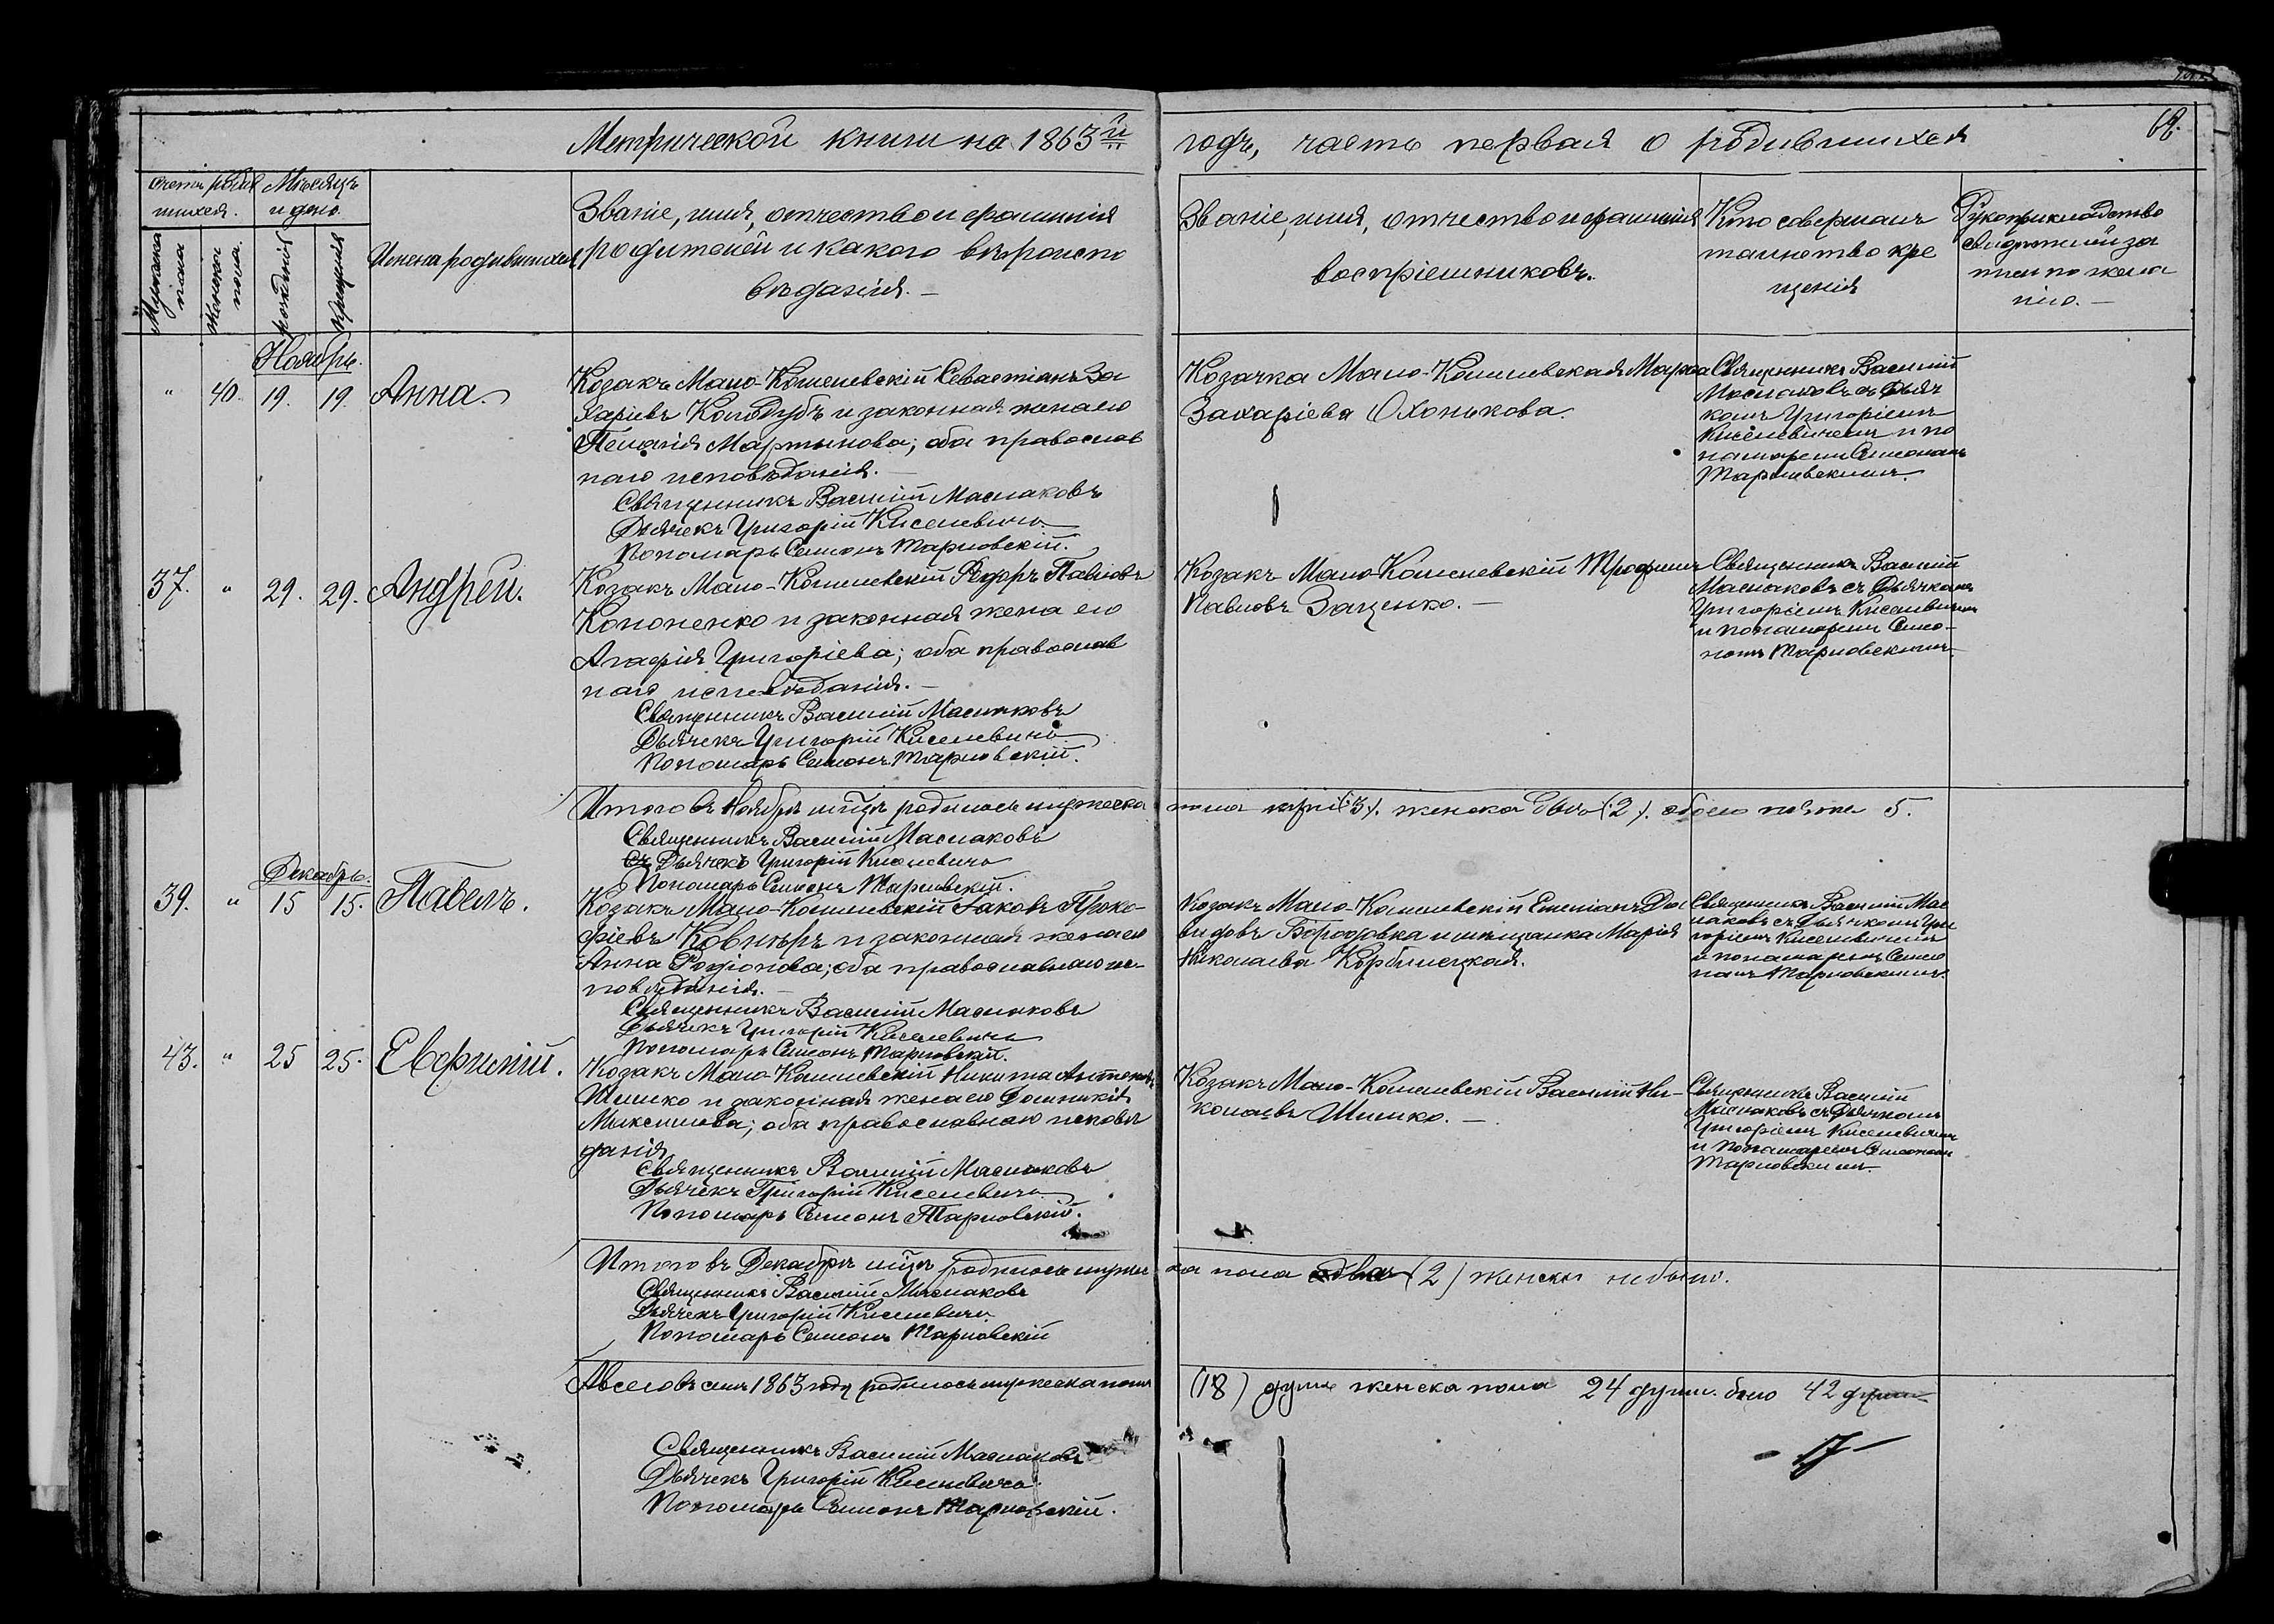 Метрической книги на 1863й годъ, часть первая о родившихся
68.
Счетъ родив
шихся.
Мѣсяцъ
и день.
Мужеска
пола
Женска
пола.
рожденія
крещенія
Имена родившихся
Званіе, имя, отчество и фамилія
родителей и какого вѣроиспо
вѣданія.
Званіе, имя, отчество и фамилія
воспріемниковъ.
Кто совершалъ
таинство кре
щенія
Рукоприкладство
свидѣтелей за
писи по жела
нію.
Ноябрь.
" 40. 19. 19. Анна.
Козакъ Мало-Кошелевскій Севастіанъ За
харіевъ Кологубъ и законная жена его
Пелагія Мартынова; оба православ
наго исповѣданія.
Священникъ Василій Маслаковъ
Дьячекъ Григорій Киселевичъ
Пономарь Семіонъ Тарновскій.
Козачка Мало-Кошелевская Марѳа
Захаріева Охонькова.
Священникъ Василій
Маслаковъ съ Дьяч
комъ Григоріемъ
Киселевичемъ и по
номаремъ Семіономъ
Тарновскимъ.
37. " 29. 29. Андрей.
Козакъ Мало-Кошелевскій Ѳедоръ Павловъ
Кононенко и законная жена его
Агафія Григоріева; оба православ
наго исповѣданія.
Священникъ Василій Маслаковъ
Дьячекъ Григорій Киселевичъ
Пономарь Семіонъ Тарновскій.
Козакъ Мало-Кошелевскій Трофимъ
Павловъ Заценко.
Священникъ Василій
Маслаковъ съ Дьячкомъ
Григоріемъ Киселевичемъ
и пономаремъ Семіо-
номъ Тарновскимъ.
Итого въ Ноябрѣ мцѣ родилось мужеска пола три (3). женска двѣ (2). обоего пола 5.
Священникъ Василій Маслаковъ
Дьячекъ Григорій Киселевичъ
Пономарь Семіонъ Тарновскій.
Декабрь.
39. " 15 15. Павелъ.
Козакъ Мало-Кошелевскій Іаковъ Проко-
фіевъ Ковнѣръ и законная жена его
Анна Родіонова; оба православнаго ис-
повѣданія.
Священникъ Василій Маслаковъ
Дьячекъ Григорій Киселевичъ
Пономарь Семіонъ Тарновскій.
Козакъ Мало-Кошелевскій Емеліанъ Да
видовъ Бородовка и мѣщанка Марія
Николаева Корбинецкая.
Священникъ Василій Мас
лаковъ съ Дьячкомъ Гри
горіемъ Киселевичемъ
и пономаремъ Семіо
номъ Тарновскимъ.
43. " 25 25. Евфимій.
Козакъ Мало-Кошелевскій Никита Антоновъ
Шишко и законная жена его Домникія
Максимова; оба православнаго исповѣ
данія
Священникъ Василій Маслаковъ
Дьячекъ Григорій Киселевичъ
Пономарь Семіонъ Тарновскій.
Козакъ Мало-Кошелевскій Василій Ни-
колаевъ Шишко.
Священникъ Василій
Маслаковъ съ Дьячкомъ
Григоріемъ Киселевичемъ
и Пономаремъ Семіономъ
Тарновскимъ.
Итого въ Декабрѣ мцѣ родилось мужес ка пола два (2) женска небыло.
Священникъ Василій Маслаковъ
Дьячекъ Григорій Киселевичъ
Пономарь Семіонъ Тарновскій
А всего въ семъ 1863 году родилось мужеска пола (18) душъ женска пола 24 душ. обоего 42 душъ
Священникъ Василій Маслаковъ
Дьячекъ Григорій Киселевичъ
Пономарь Семіонъ Тарновскій.
17